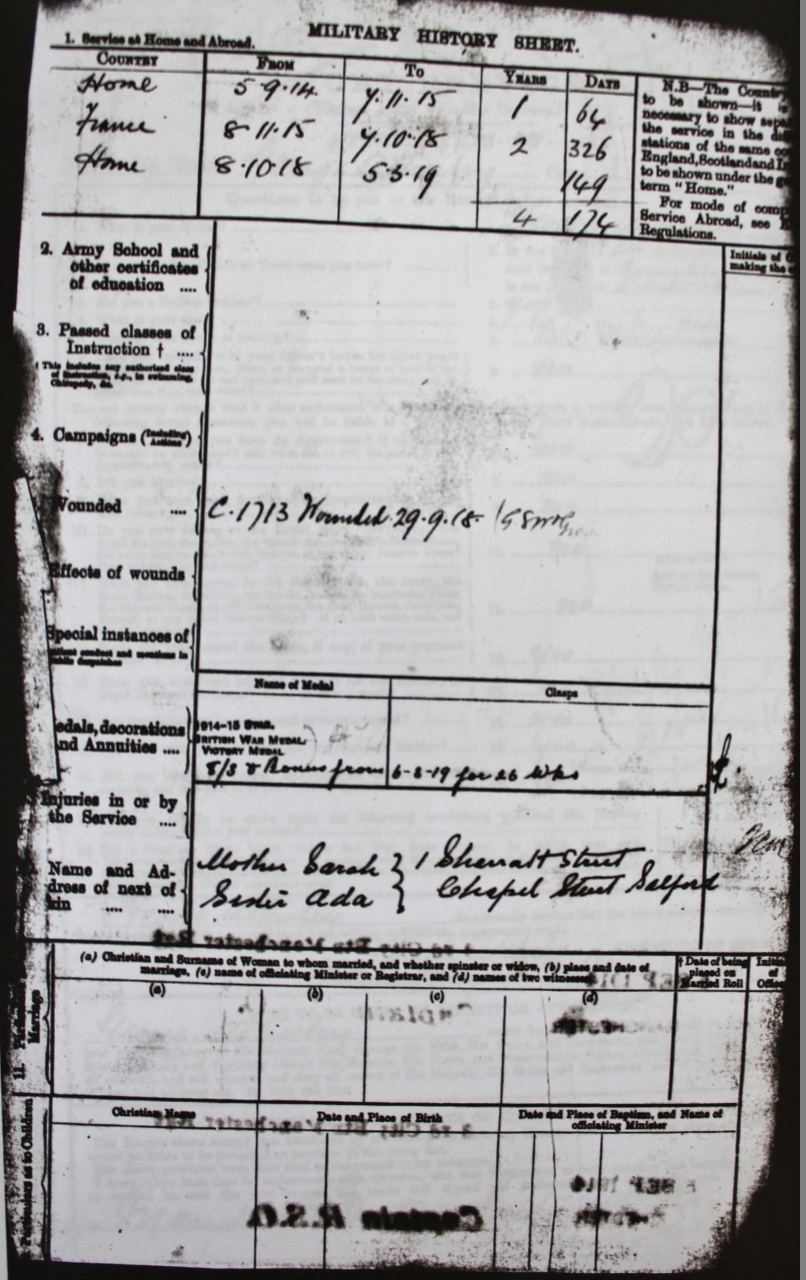 MILITARY HISTORY SHEET.
1. Service at Home and Abroad.
COUNTRY FROM TO YEARS DAYS
Home 5·9·14 7·11·15 1 64
France 8·11·15 7·10·18 2 326
Home 8·10·18 5·3·19 149
4 174
N.B—The Count
to be shown—it is
necessary to show sepa
the service in the
stations of the same co
England, Scotland and I
to be shown under the g
term "Home."
For mode of comp
Service Abroad, see
Regulations.
Initials of
making the
2. Army School and
other certificates
of education ....
3. Passed classes of
Instruction † ....
† This includes any authorised class
of Instruction, e.g., in swimming,
Chiropody, &c.
4. Campaigns (Including Actions)
Wounded .... C·1713 Wounded 29·9·18·
Effects of wounds
Special instances of
gallant conduct and mentions in
public despatches
Name of Medal Clasps
edals, decorations
nd Annuities ....
1914-15 STAR.
BRITISH WAR MEDAL
VICTORY MEDAL
8/3 & Bonus from 6-3-19 for 26 wks
Injuries in or by
the Service ....
Name and Ad-
dress of next of
kin .... ....
Mother Sarah } 1 Sharratt Street
Sister Ada } Chapel Street Salford
(a) Christian and Surname of Woman to whom married, and whether spinster or widow, (b) place and date of
marriage, (c) name of officiating Minister or Registrar, and (d) names of two witnesses
† Date of being
placed on
Married Roll
Initials
of
Office
(a) (b) (c) (d)
11.
Marriage
Christian Name Date and Place of Birth Date and Place of Baptism, and Name of
officiating Minister
Particulars as to Children
Captain R.S.O.